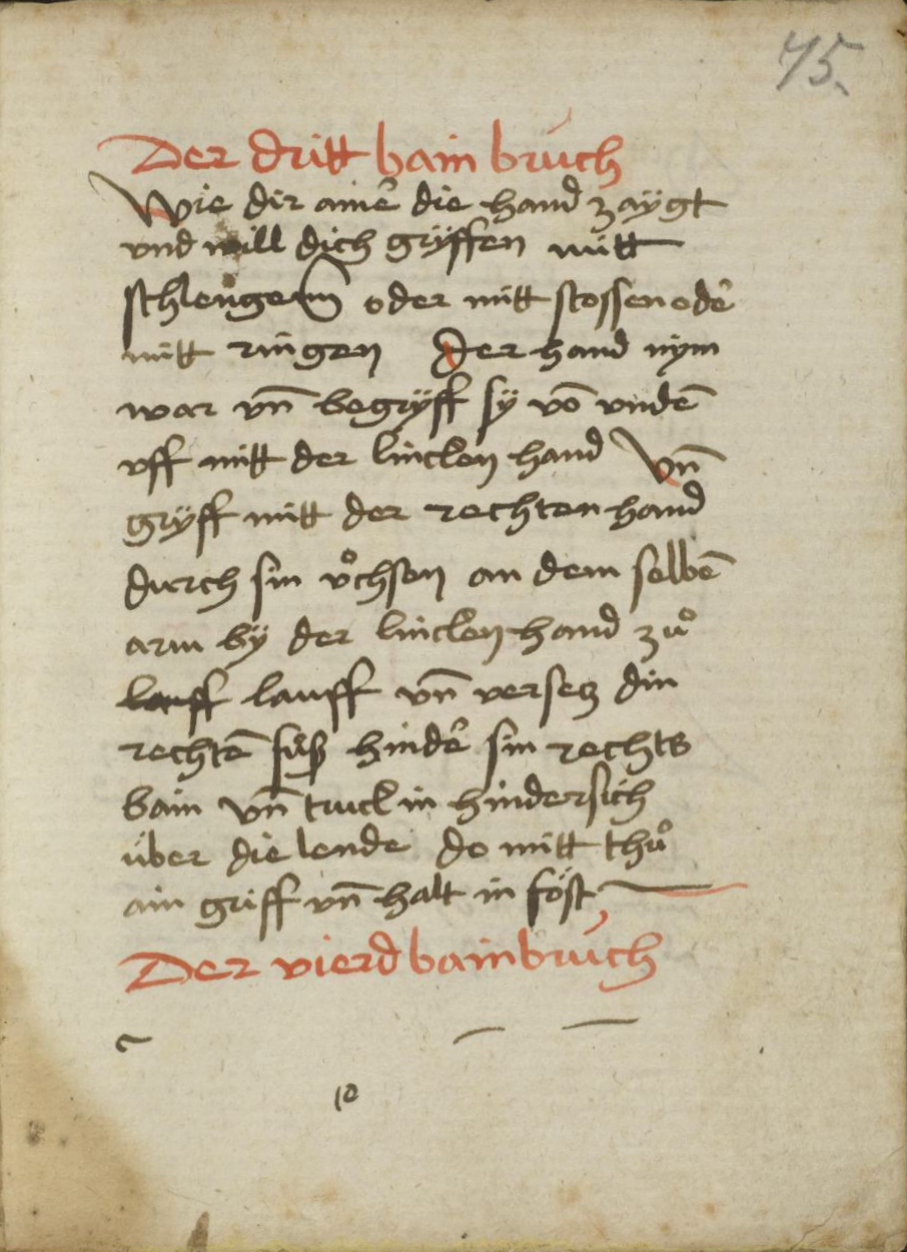 75.
Der dritt bain bruch
Wie dir ainer̄ die hand zaÿgt
vnd will dich grÿffen mitt
schlengenn oder mitt stossen odē
mitt ringen Der hand nÿm
war vn̄ begrÿff sÿ vō vndē
vff mitt der lincken hand Vn̄
grÿff mitt der rechten hand
durch sin vͦchsen an dem selbē
arm bÿ der lincken hand zuͦ
lauff lauff vn̄ versetz din
rechtē fuͦß hindē sin rechts
bain vn̄ truck in hindersich
über die lende do mitt thuͦ
ain griff vn̄ halt in föst
Der vierd bainbruch